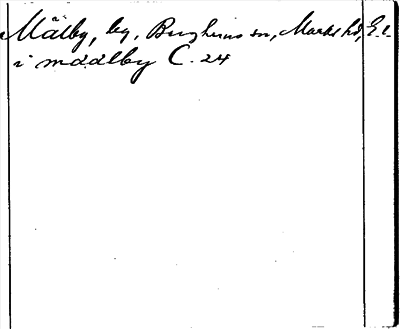 Mälby, by, Berghems sn, Marks hd, Ä.l.
i mddlby C. 24